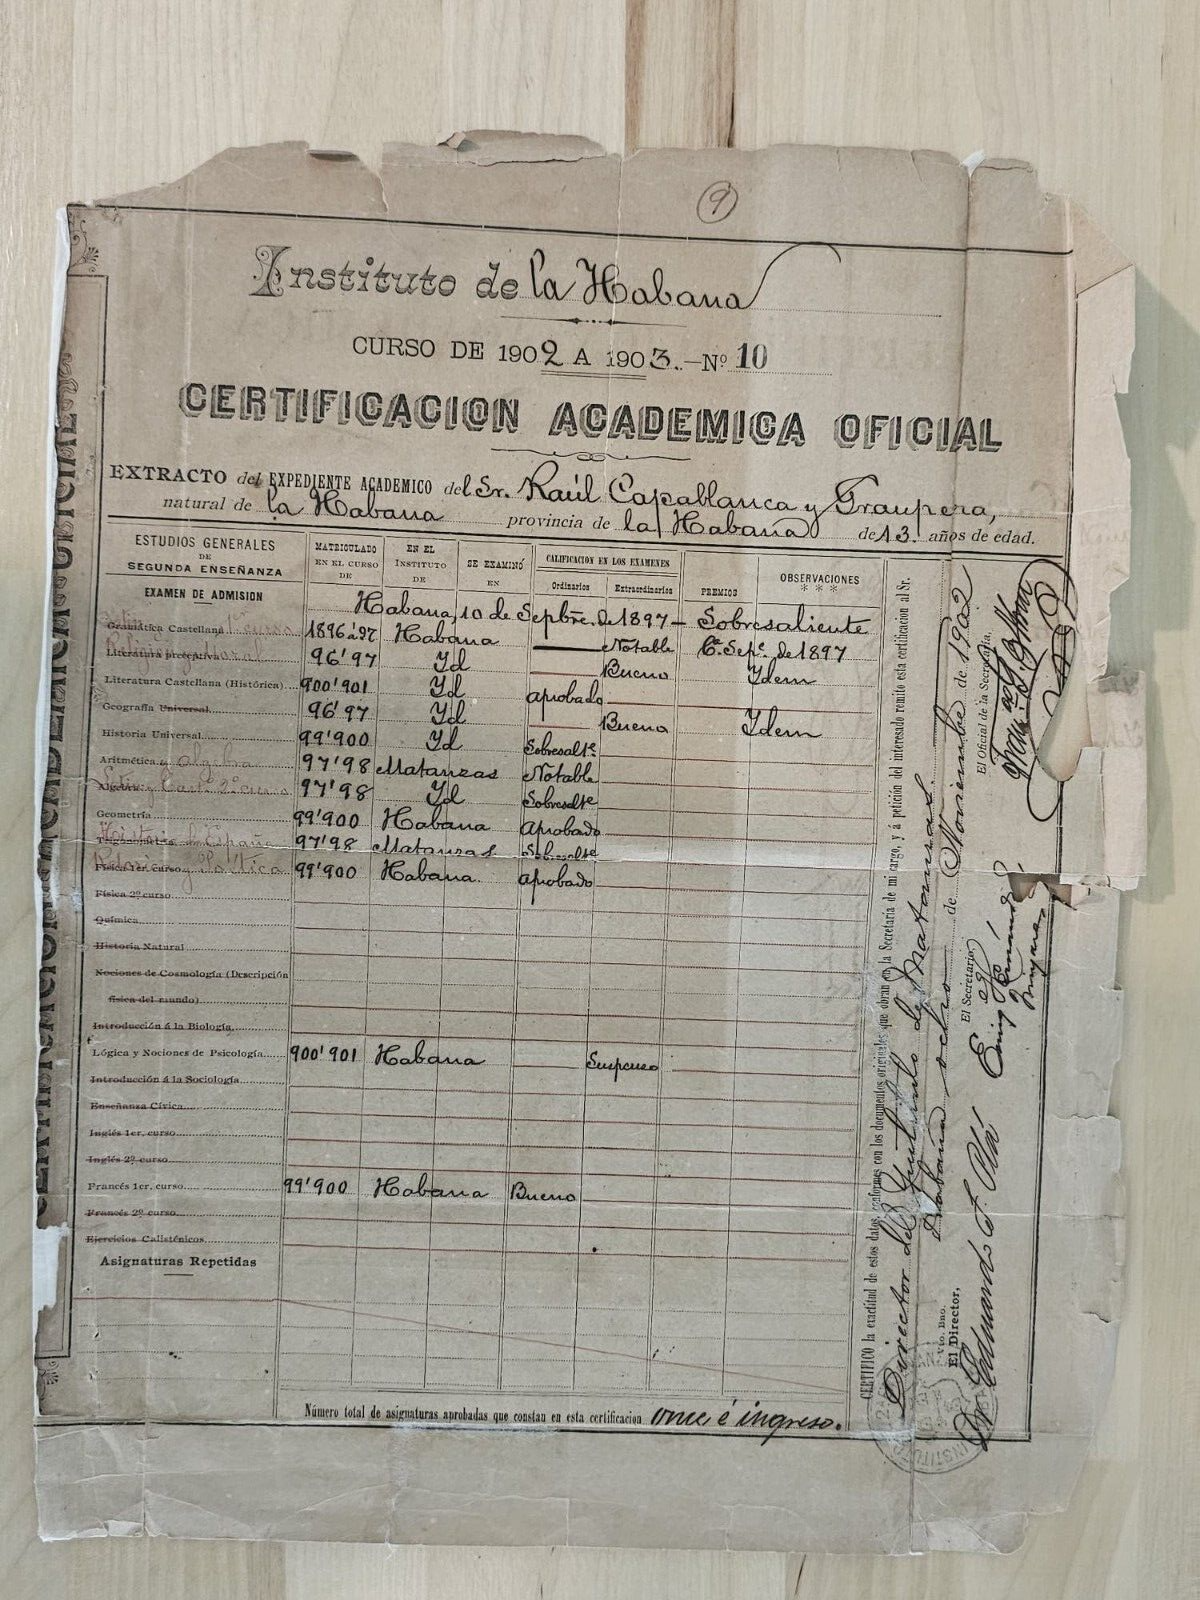 9
Instituto de la Habana
CURSO DE 1902 A 1903.—Nº 10
CERTIFICACION ACADEMICA OFICIAL
EXTRACTO del EXPEDIENTE ACADEMICO del Sr. Raúl Capablanca y Graupera,
natural de la Habana provincia de la Habana de 13 años de edad.
ESTUDIOS GENERALES DE SEGUNDA ENSEÑANZA
MATRICULADO EN EL CURSO DE
EN EL INSTITUTO DE
SE EXAMINÓ EN
CALIFICACION EN LOS EXAMENES
Ordinarios Extraordinarios
PREMIOS
OBSERVACIONES
***
EXAMEN DE ADMISION Habana, 10 de Sepbre. de 1897 — Sobresaliente
Gramática Castellana 1er curso 1896'97 Habana Notable Cª Sepe. de 1897
Literatura preceptiva Religión y Moral 96'97 Yd Bueno Ydem
Literatura Castellana (Histórica) 900'901 Yd aprobado
Geografía Universal 96'97 Yd Bueno Ydem
Historia Universal 99'900 Yd Sobresalte
Aritmética y Algebra 97'98 Matanzas Notable
Algebra Latin y Castº 2º curso 97'98 Yd Sobresalte
Geometría 99'900 Habana aprobado
Historia de España 97'98 Matanzas Sobresalte
Física 1er. curso Retórica y Poética 99'900 Habana aprobado
Física 2º curso
Química
Historia Natural
Nociones de Cosmología (Descripción
física del mundo)
Introducción á la Biología
Lógica y Nociones de Psicología 900'901 Habana Suspenso
Introducción á la Sociología
Enseñanza Cívica
Inglés 1er. curso
Inglés 2º curso
Francés 1er. curso 99'900 Habana Bueno
Francés 2º curso
Ejercicios Calisténicos
Asignaturas Repetidas
Número total de asignaturas aprobadas que constan en esta certificacion once é ingreso.
CERTIFICO la exactitud de estos datos, conformes con los documentos originales que obran en la Secretaría de mi cargo, y á petición del interesado remito esta certificación al Sr.
Director del Instituto de Matanzas.
Habana ocho de Noviembre de 1902
Vto. Bno.
El Director,
Dr. Eduardo F. Plá
El Secretario,
El Oficial de la Secretaría,
INSTITUTO